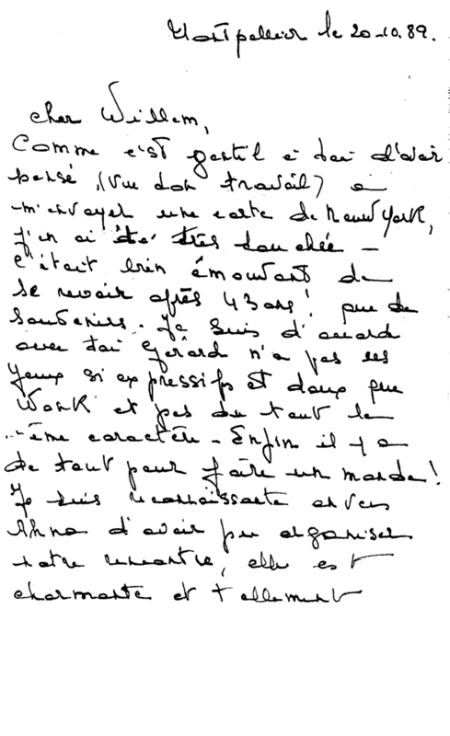 Montpellier le 20-10.89.
cher Willem,
Comme c'est gentil à toi d'avoir
pensé, (vue ton travail) à
m'envoyer une carte de New York,
j'en ai été très touchée -
c'était bien émouvant de
se revoir après 43 ans! que de
souvenirs. Je suis d'accord
avec toi Gérard n'a pas les
yeux si expressifs et doux que
et pas du tout le
même caractère - Enfin il y a
de tout pour faire un monde!
Je suis reconnaissante envers
Anna d'avoir pu organiser
notre rencontre, elle est
charmante et tellement